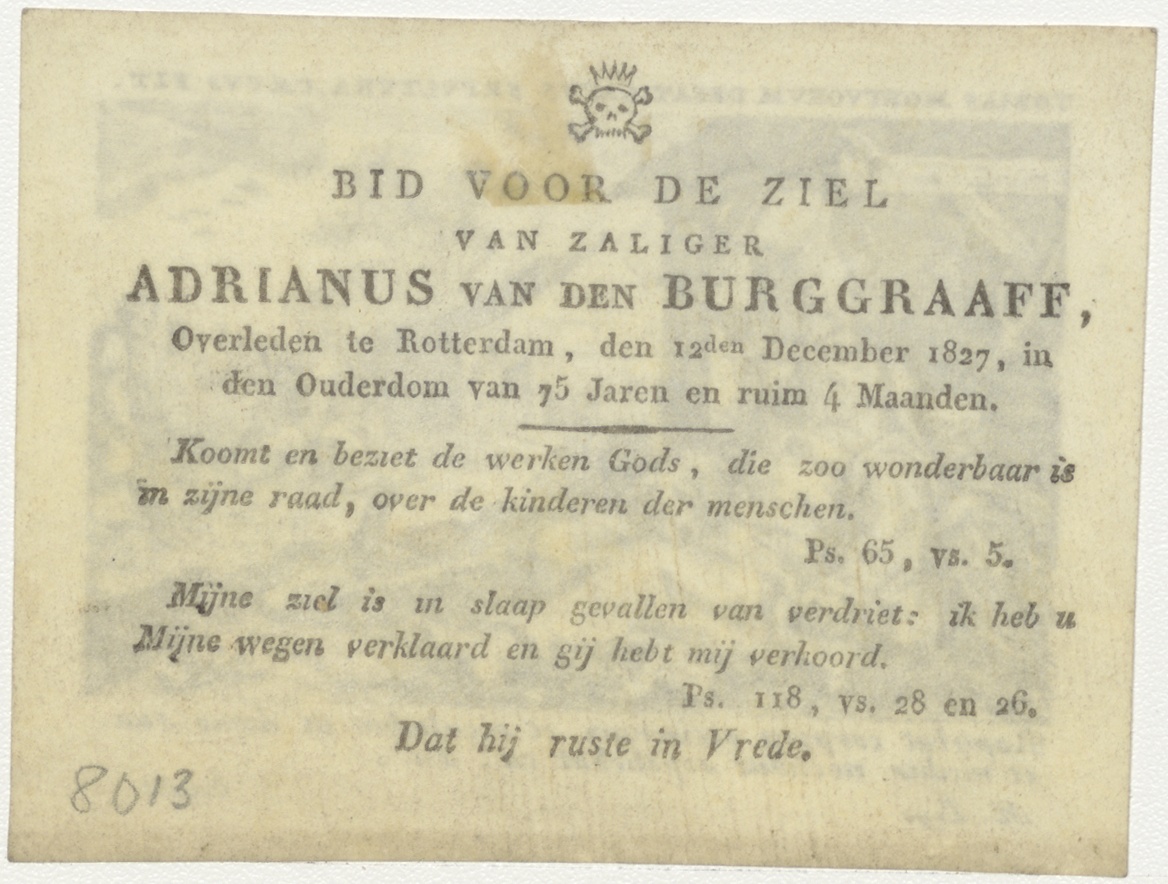 BID VOOR DE ZIEL
VAN ZALIGER
ADRIANUS VAN DEN BURGGRAAFF,
Overleden te Rotterdam, den 12den December 1827, in
den Ouderdom van 75 Jaren en ruim 4 Maanden.
Koomt en beziet de werken Gods, die zoo wonderbaar is
in zijne raad, over de kinderen der menschen.
Ps. 65, vs. 5.
Mijne ziel is in slaap gevallen van verdriet: ik heb u
Mijne wegen verklaard en gij hebt mij verhoord.
Ps. 118, vs. 28 en 26.
Dat hij ruste in Vrede.
8013